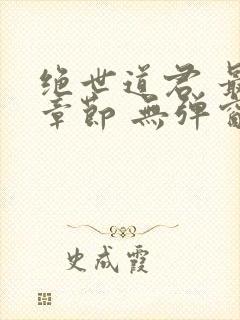 绝世道君 最
章节 無弹窗
史成霞